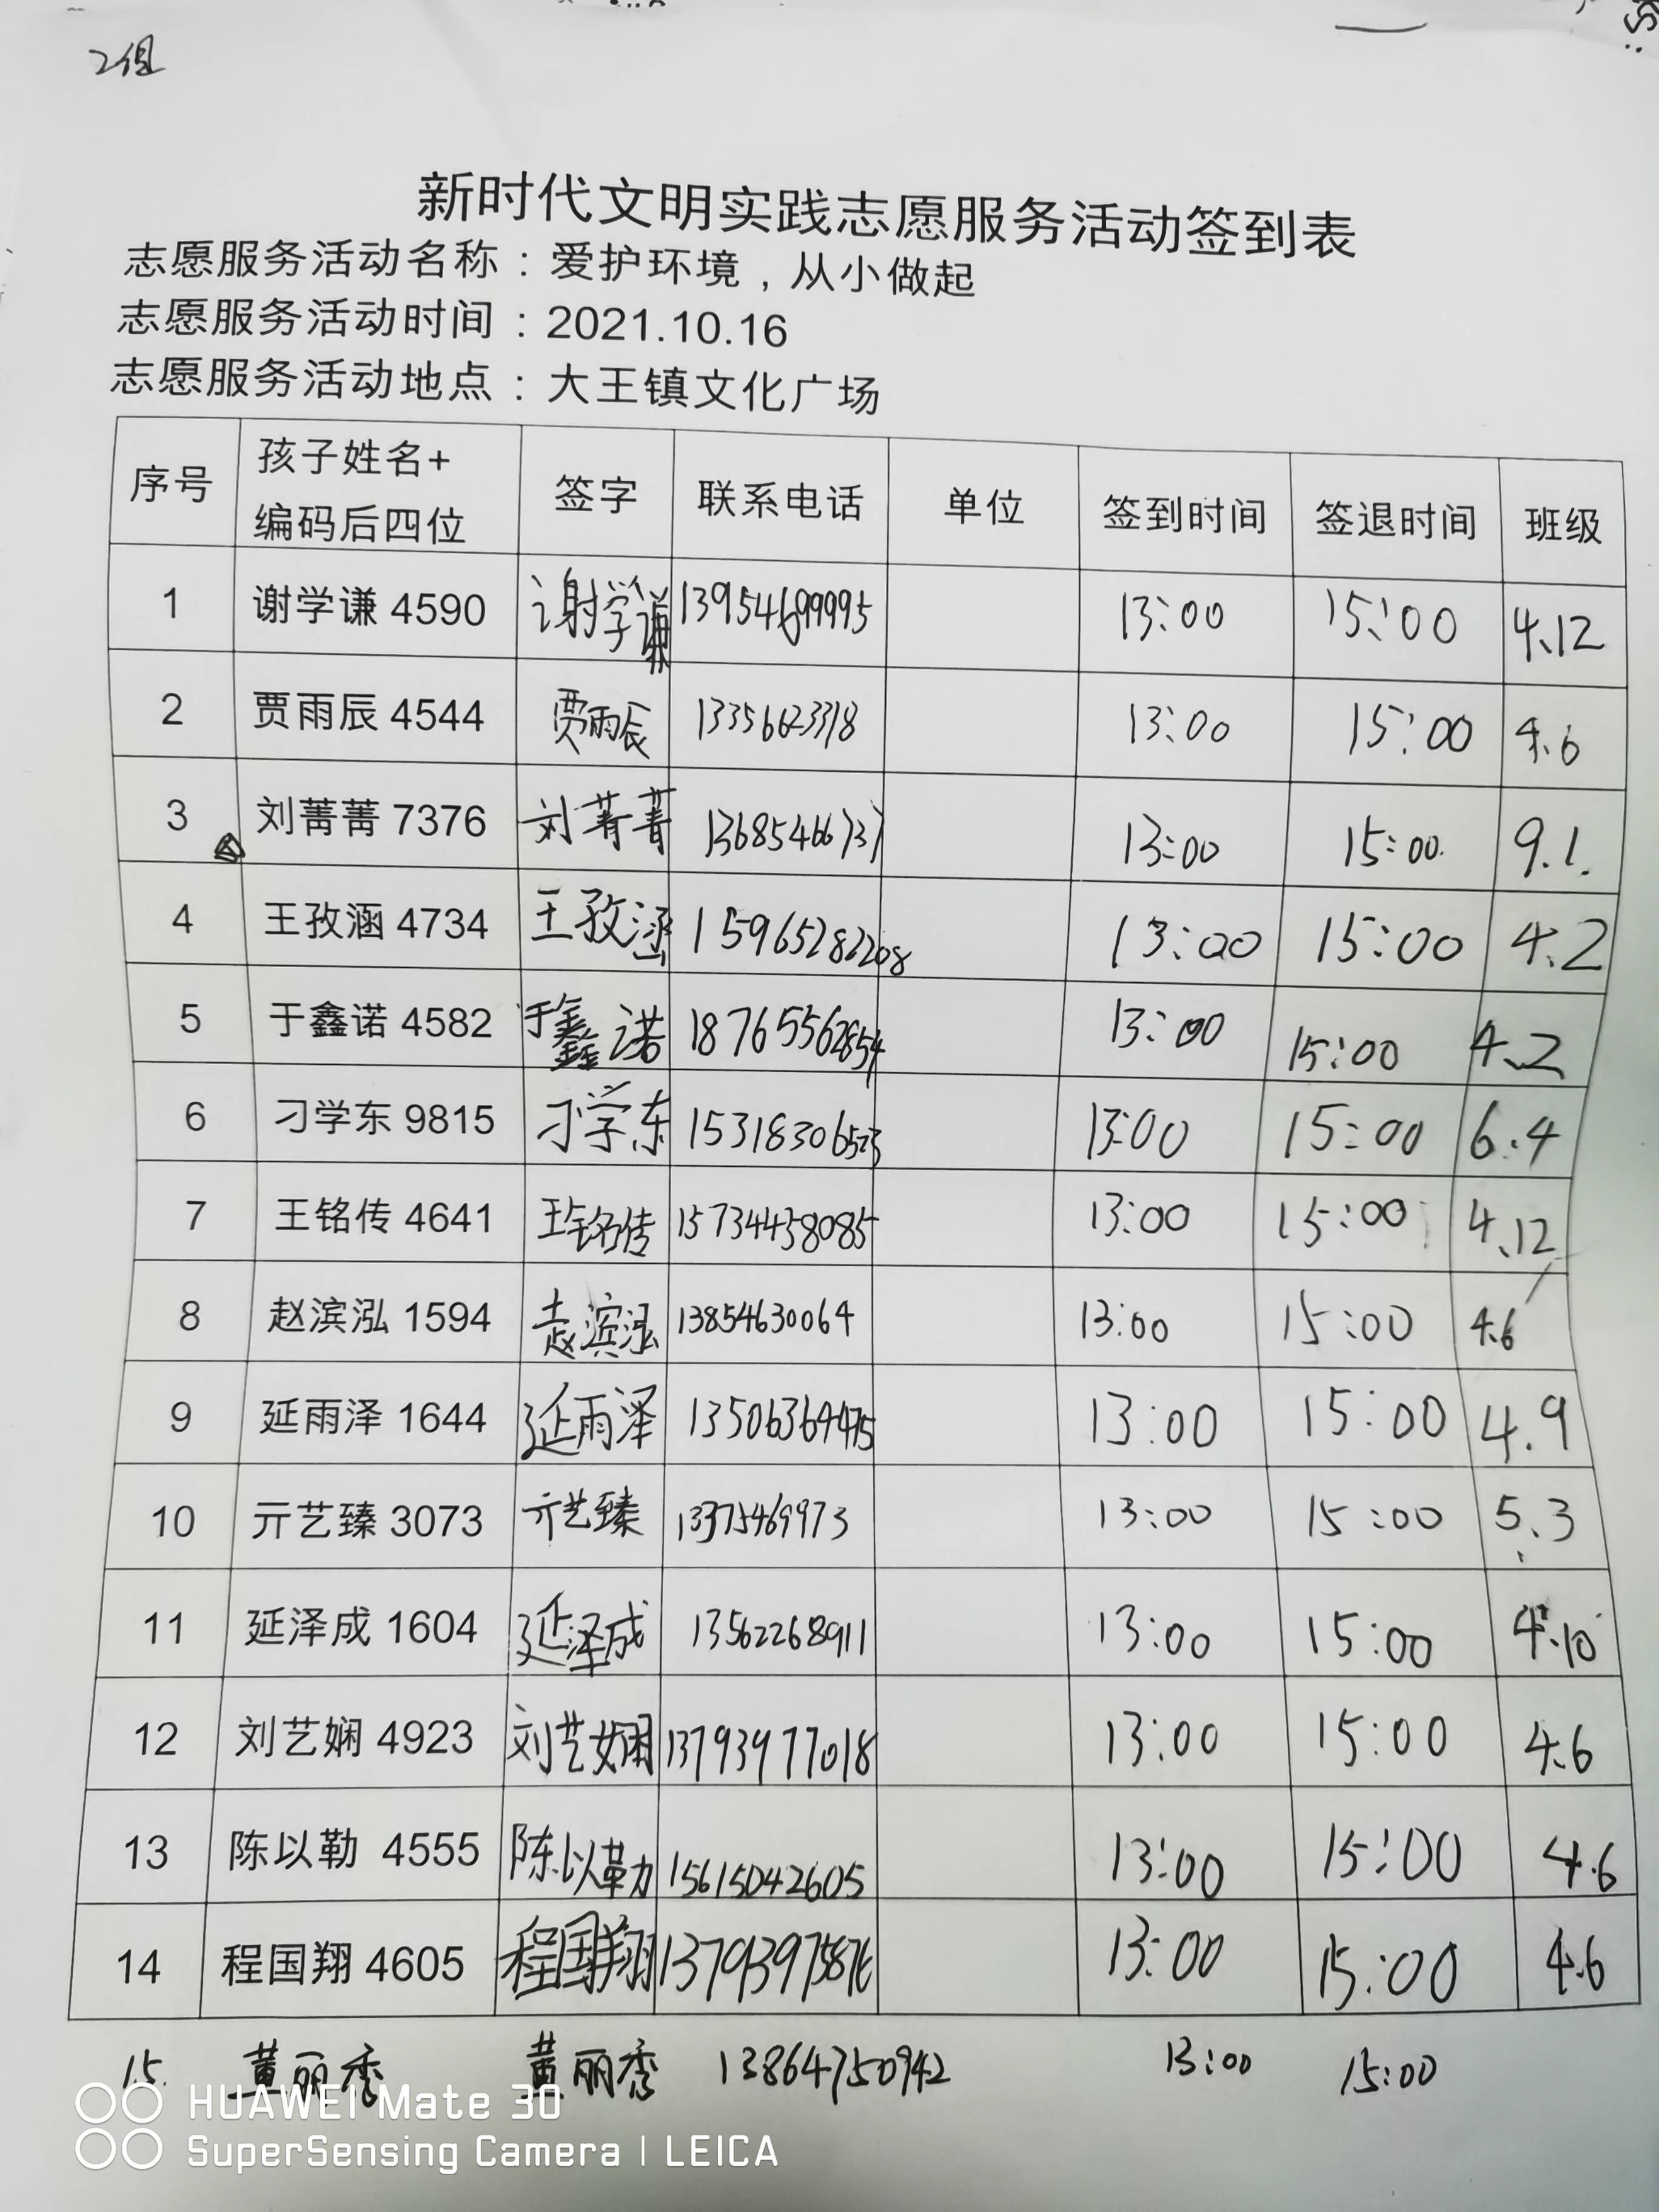 2组
新时代文明实践志愿服务活动签到表
志愿服务活动名称：爱护环境，从小做起
志愿服务活动时间：2021.10.16
志愿服务活动地点：大王镇文化广场
序号 孩子姓名+编码后四位 签字 联系电话 单位 签到时间 签退时间 班级
1 谢学谦 4590 谢学谦 13954699995 13:00 15:00 4.12
2 贾雨辰 4544 贾雨辰 13356623318 13:00 15:00 4.6
3 刘菁菁 7376 刘菁菁 13685466737 13:00 15:00. 9.1.
4 王孜涵 4734 王孜涵 15965282208 13:00 15:00 4.2
5 于鑫诺 4582 于鑫诺 18765562854 13:00 15:00 4.2
6 刁学东 9815 刁学东 15318306523 13:00 15:00 6.4
7 王铭传 4641 王铭传 15734438085 13:00 15:00 4.12
8 赵滨泓 1594 赵滨泓 13854630064 13:00 15:00 4.6
9 延雨泽 1644 延雨泽 13506369475 13:00 15:00 4.9
10 亓艺臻 3073 亓艺臻 13375469973 13:00 15:00 5.3
11 延泽成 1604 延泽成 13562268911 13:00 15:00 4.10
12 刘艺娴 4923 刘艺娴 13793977018 13:00 15:00 4.6
13 陈以勒 4555 陈以勒 15615042605 13:00 15:00 4.6
14 程国翔 4605 程国翔 13793975876 13:00 15:00 4.6
15. 黄丽秀 黄丽秀 13864750942 13:00 15:00
HUAWEI Mate 30
SuperSensing Camera | LEICA